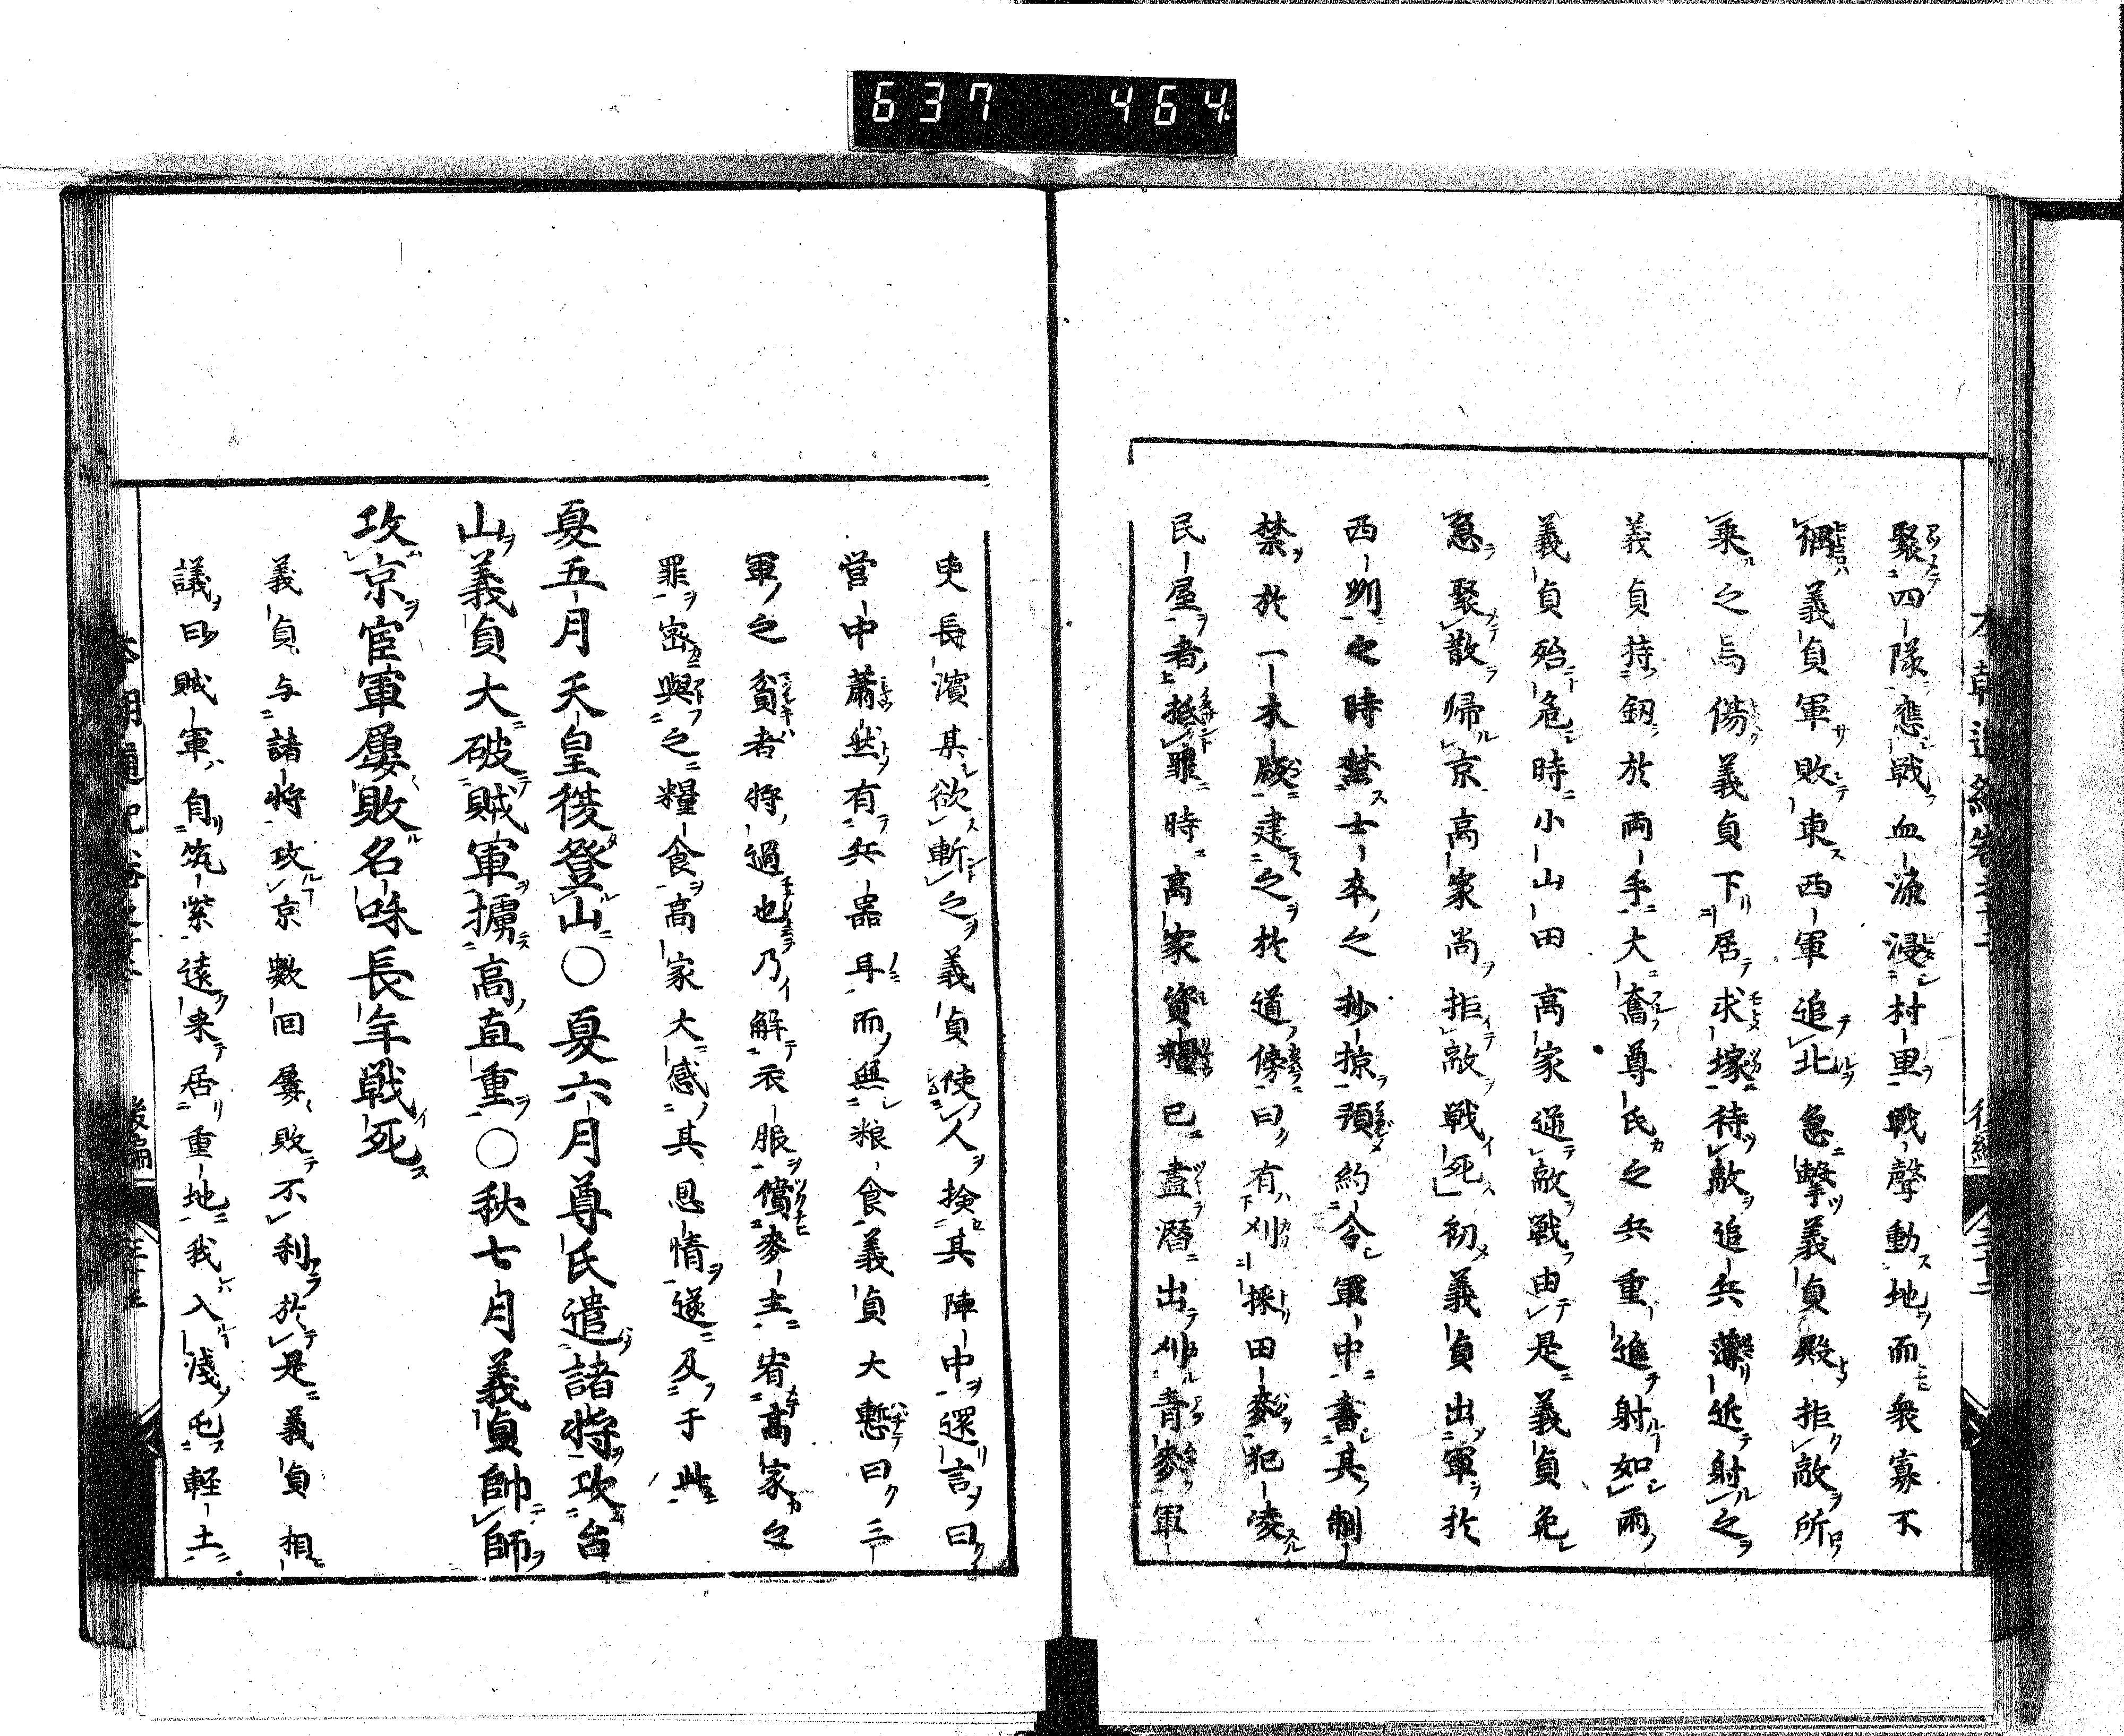 637 464
聚四隊應戦血流浸村里戦聲動地而衆寡不
偶義貞軍敗東西軍追北急擊義貞殿拒敵所
乗之馬傷義貞下居求塚待敵追兵薄近射之
義貞持釼於両手大奮尊氏之兵重進射如雨
義貞殆危時小山田高家逆敵戦由是義貞免
急聚散帰京高家尚拒敵戦死初義貞出軍於
西州之時禁士卒之抄掠預約令軍中書其制
禁於一木版建之於道傍曰有刈採田麥犯凌
民屋者抵罪時高家資糧已盡潛出刈青麥軍
吏長濱某欲斬之義貞使人検其陣中還言曰
営中蕭然有兵噐耳而無粮食義貞大慙曰三
軍之貧者将過也乃解衣服償麥主宥高家之
罪密與之糧食高家大感其恩情遂及于此
夏五月天皇復登山〇夏六月尊氏遣諸将攻台
山義貞大破賊軍擄高直重〇秋七月義貞帥師
攻京官軍屢敗名和長年戦死
義貞与諸将攻京數回屢敗不利於是義貞相
議曰賊軍自筑紫遠来居重地我入淺屯軽土